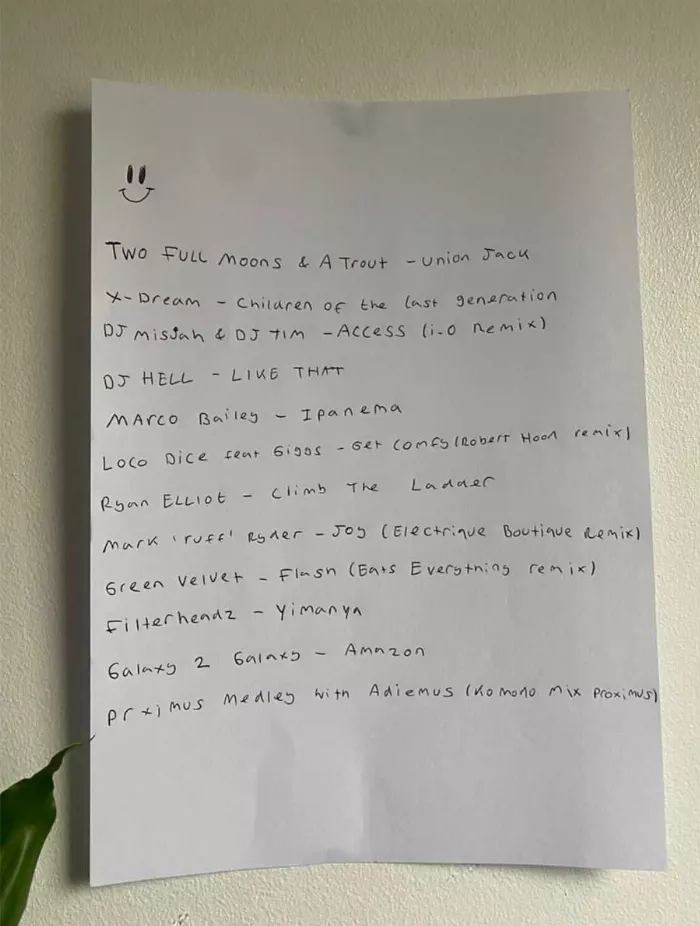 Two Full Moons & A Trout - Union Jack
X-Dream - Children of the last generation
DJ Misjah & DJ Tim - Access (i_o Remix)
DJ HELL - LIKE THAT
Marco Bailey - Ipanema
Loco Dice feat Giggs - Get Comfy (Robert Hood remix)
Ryan Elliot - Climb The Ladder
Mark 'ruff' Ryder - Joy (Electrique Boutique Remix)
Green Velvet - Flash (Eats Everything remix)
Filterheadz - Yimanya
Galaxy 2 Galaxy - Amazon
Prximus Medley with Adiemus (Komodo Mix Proximus)